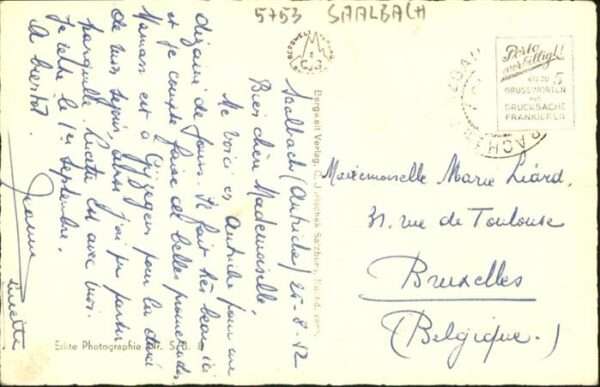 5753 SAALBACH
Saalbach (Autriche) 25-8-52
Bien chère Mademoiselle,
Me voici en Autriche pour une
dizaine de jours. Il fait très beau ici
et je compte faire de belles promenades.
Maman est à pour la durée
de mon séjour, alors j'ai pu partir
tranquille. Lucette est avec moi.
Je rentre le 1er septembre.
A bientôt.
Jeanne
Lucette
Porto
verbilligt!
bis zu 5
GRUSSWORTEN
als
DRUCKSACHE
FRANKIEREN
Mademoiselle Marie Liard.
31, rue de Toulouse
Bruxelles
(Belgique.)
Bergwelt Verlag, C. J.
Echte Photographie